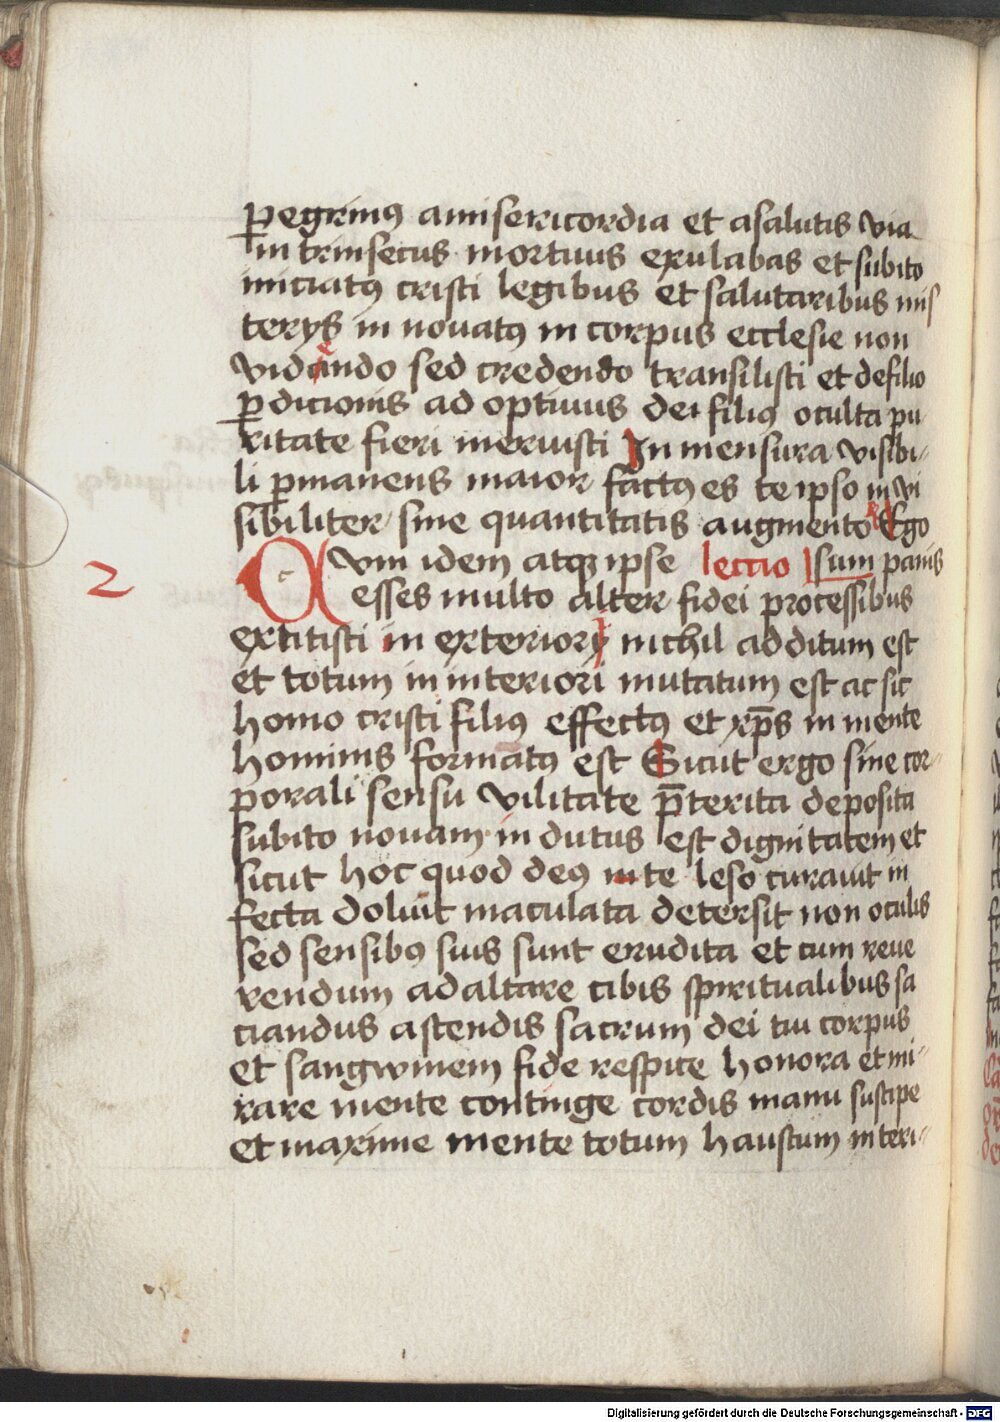 pegrinꝰ a misericordia et a salutis via
in trinsecus mortuus exulabas et subito
iniciatꝰ cristi legibus et salutaribus mis
terys in nouatꝰ in corpus ecclesie non
videndo sed credendo transilisti et de filio
pdicionis ad optiuus dei filiꝰ oculta pu
ritate fieri meruisti In mensura visibi-
li pmanens maior factꝰ es te ipso in vi
sibiliter sine quantitatis augmento R Ego
2
Qvm idem atqꝫ ipse lectio sum panis
esses multo alter fidei processibus
extitisti in exteriory nichil additum est
et totum in interiori mutatum est ac sic
homo cristi filiꝰ effectꝰ et xp̄s in mente
hominis formatꝰ est Sicut ergo sine cor-
porali sensu vilitate p̄terita deposita
subito nouam in dutus est dignitatem et
sicut hoc quod deꝰ in te leso curauit in
fecta doluit maculata detersit non oculis
sed sensibꝰ suis sunt erudita et cum reue
rendum ad altare cibis spiritualibus sa
ciandus ascendis sacrum dei tui corpus
et sangwinem fide respice honora et mi-
rare mente continge cordis manu suscipe
et maxime mente totum haustum interi-
Digitalisierung gefördert durch die Deutsche Forschungsgemeinschaft - DFG